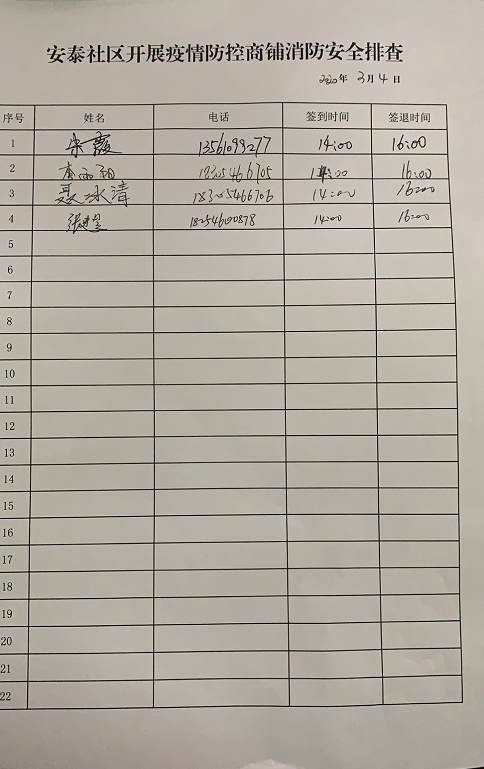 安泰社区开展疫情防控商铺消防安全排查
2020年 3月4日
序号 姓名 电话 签到时间 签退时间
1 宋霞 14:00 16:00
2 18305466705 14:00 16:00
3 聂冰清 18305466706 14:00 16:00
4 18254600878 14:00 16:00
5
6
7
8
9
10
11
12
13
14
15
16
17
18
19
20
21
22